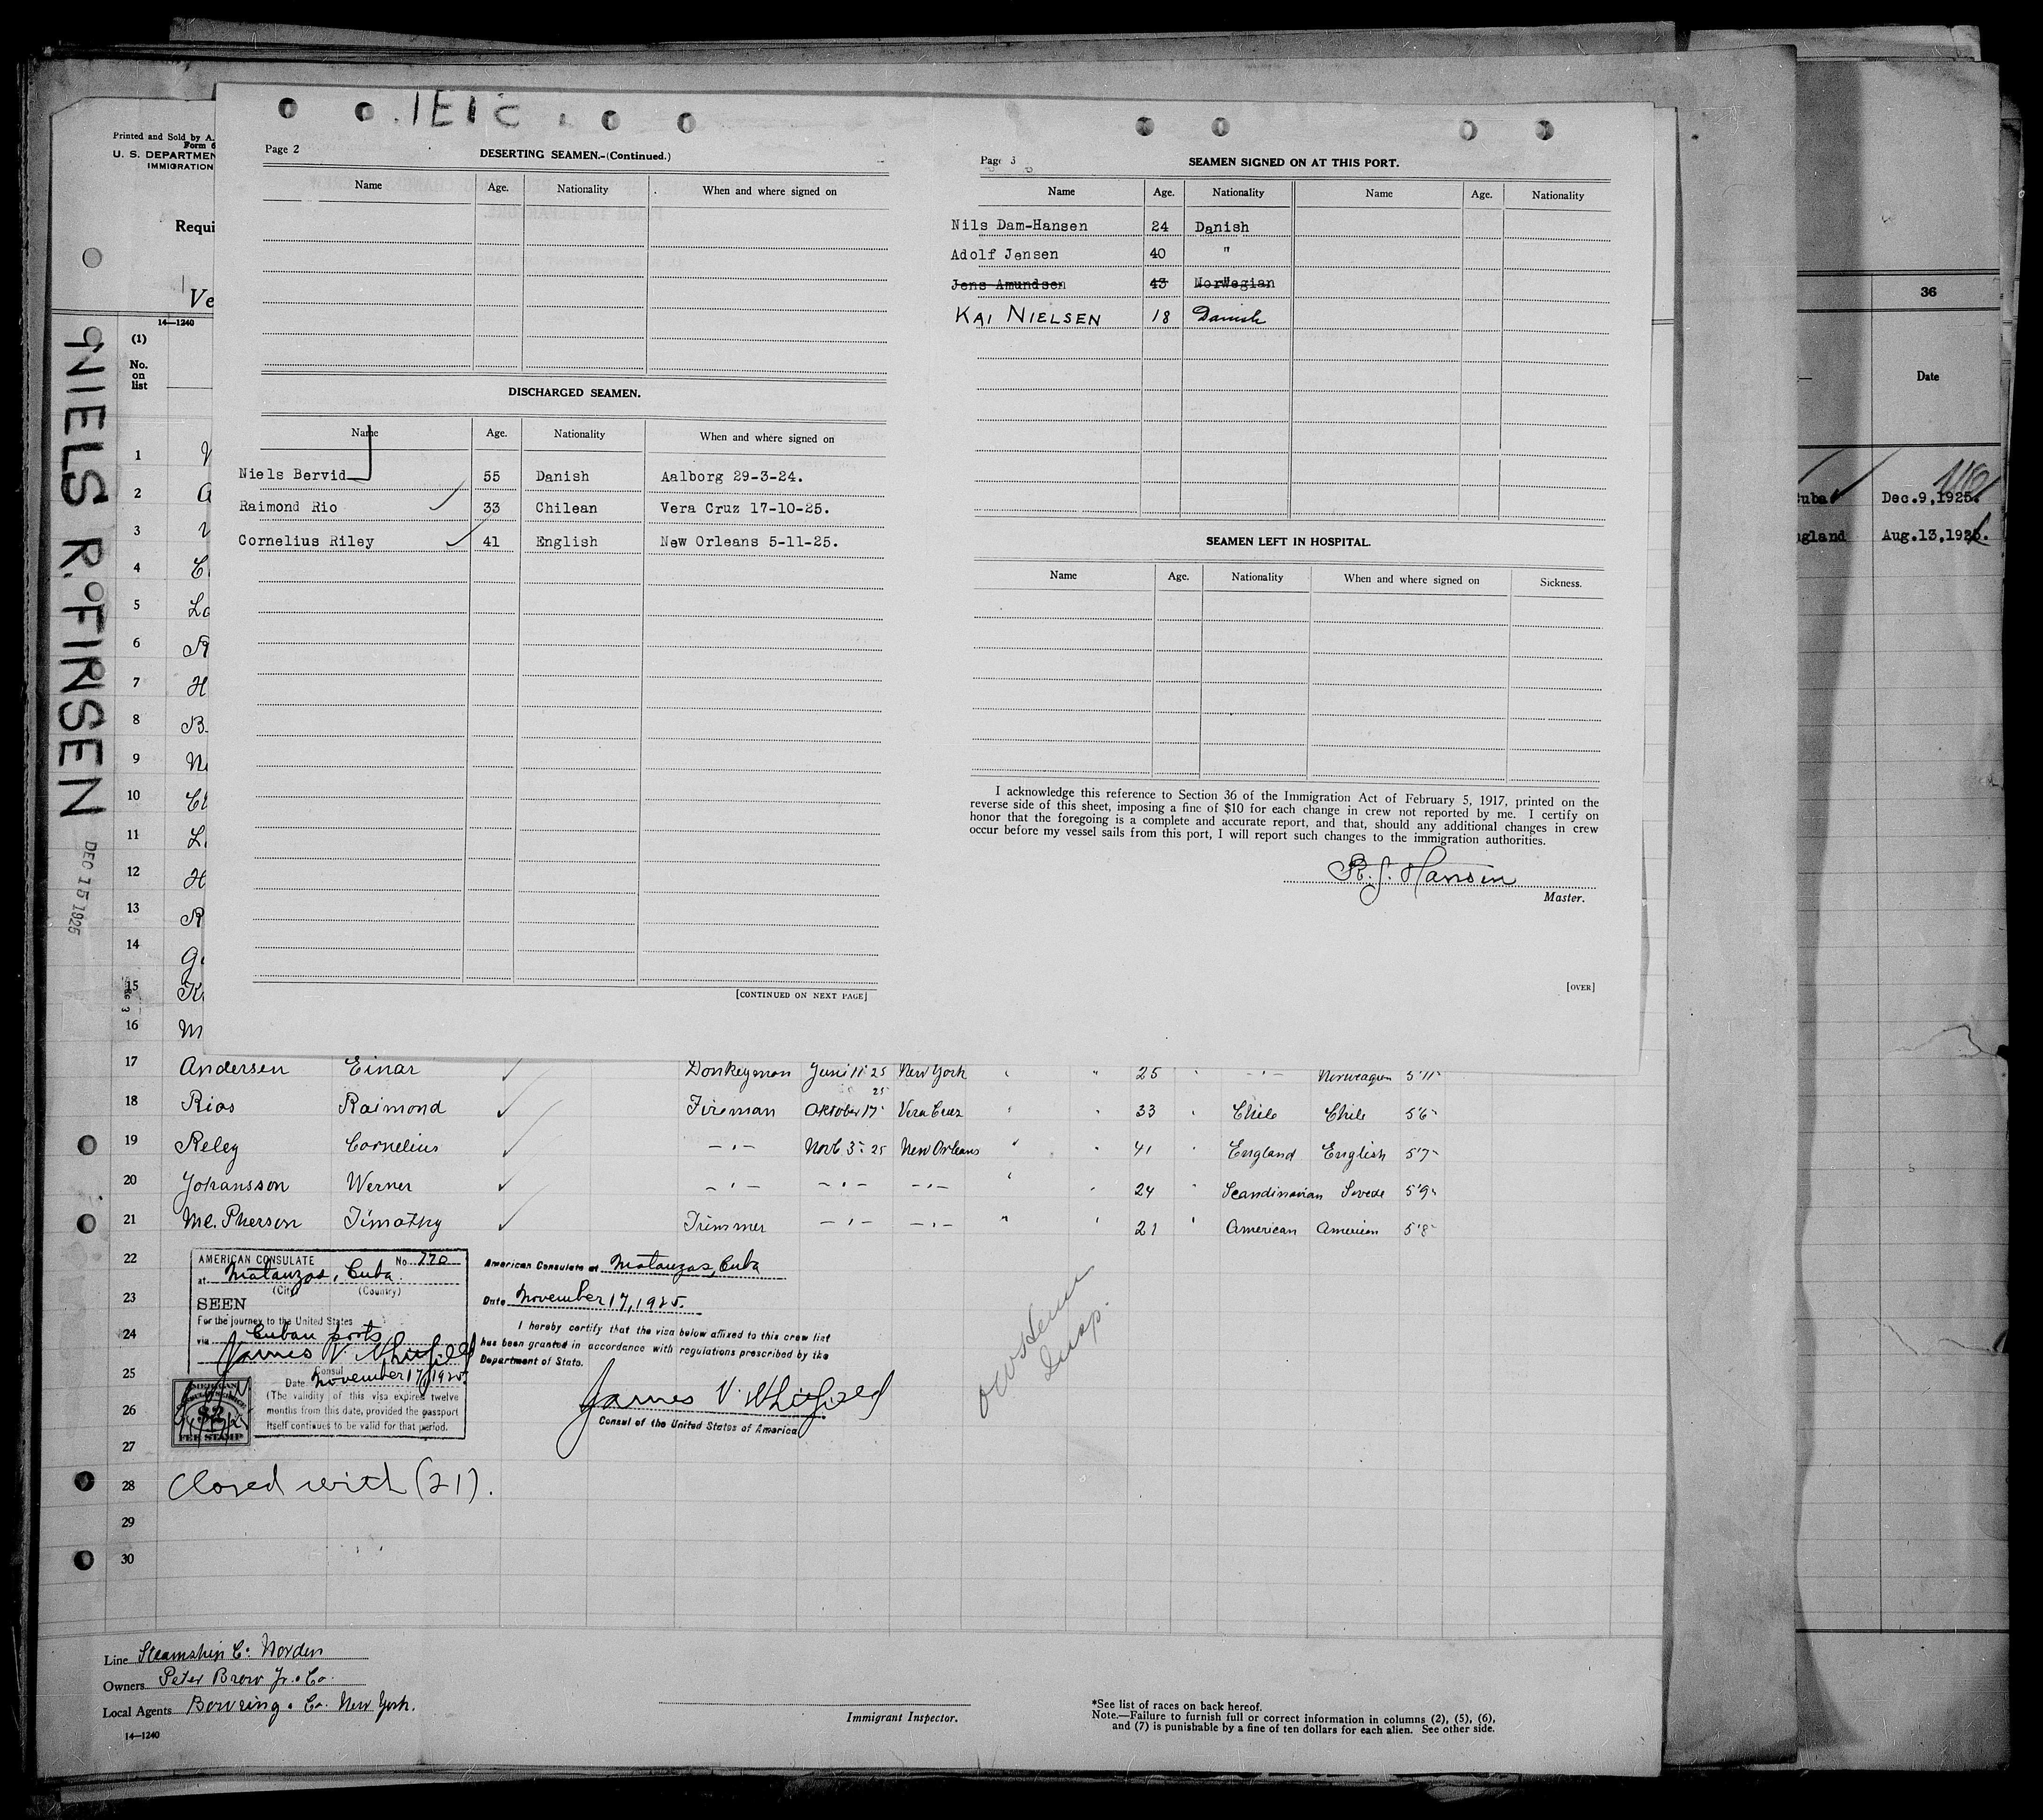 Printed and Sold by A.
Form 6
U. S. DEPARTMEN
IMMIGRATION
Requi
Ve
14—1240
(1)
No.
on
list
NIELS R. FINSEN
DEC 15 1925
Page 2
DESERTING SEAMEN.-(Continued.)
Name Age. Nationality When and where signed on
DISCHARGED SEAMEN.
Name Age. Nationality When and where signed on
Niels Bervid 55 Danish Aalborg 29-3-24.
Raimond Rio 33 Chilean Vera Cruz 17-10-25.
Cornelius Riley 41 English New Orleans 5-11-25.
[CONTINUED ON NEXT PAGE]
Page 3
SEAMEN SIGNED ON AT THIS PORT.
Name Age. Nationality Name Age. Nationality
Nils Dam-Hansen 24 Danish
Adolf Jensen 40 "
Jens Amundsen 43 Norwegian
KAI NIELSEN 18 Danish
SEAMEN LEFT IN HOSPITAL.
Name Age. Nationality When and where signed on Sickness.
I acknowledge this reference to Section 36 of the Immigration Act of February 5, 1917, printed on the
reverse side of this sheet, imposing a fine of $10 for each change in crew not reported by me. I certify on
honor that the foregoing is a complete and accurate report, and that, should any additional changes in crew
occur before my vessel sails from this port, I will report such changes to the immigration authorities.
R. J. Hansen
Master.
[OVER]
36
Date
Cuba Dec.9,1925.
ngland Aug.13,192
1
2
3
4
5
6
7
8
9
10
11
12
13
14
15
16
17 Andersen Einar Donkeyman Juni 11 25 New York " 25 " - " - Norweagen 5'11"
18 Rios Raimond Fireman Oktober 17 25 Vera Cruz " " 33 " Chile Chile 5'6"
19 Reley Cornelius - " - Novb 3 25 New Orleans " " 41 " England English 5'7"
20 Johansson Werner - " - - " - - " - " " 24 " Scandinavian Swede 5'9"
21 Mc. Pherson Timothy Trimmer - " - - " - " " 21 " American American 5'8"
22
23
24
25
26
27
28 Closed with (21).
29
30
AMERICAN CONSULATE No. 770
at Matanzas, Cuba.
(City) (Country)
SEEN
For the journey to the United States
via Cuban ports
James V. Whitfield
Consul
Date November 17, 1925.
(The validity of this visa expires twelve
months from this date, provided the passport
itself continues to be valid for that period.
$2
FEE STAMP
American Consulate at Matanzas, Cuba
Date November 17, 1925.
I hereby certify that the visa below affixed to this crew list
has been granted in accordance with regulations prescribed by the
Department of State.
James V. Whitfield
Consul of the United States of America
Insp.
Line Steamship Co. Norden
Owners Peter Brow Jr. & Co.
Local Agents Bowring & Co. New York.
14—1240
Immigrant Inspector.
*See list of races on back hereof.
Note.—Failure to furnish full or correct information in columns (2), (5), (6),
and (7) is punishable by a fine of ten dollars for each alien. See other side.